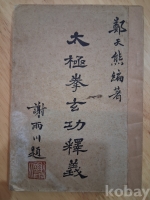 鄭天熊編著
太極拳玄功釋義
謝雨川題
kobay